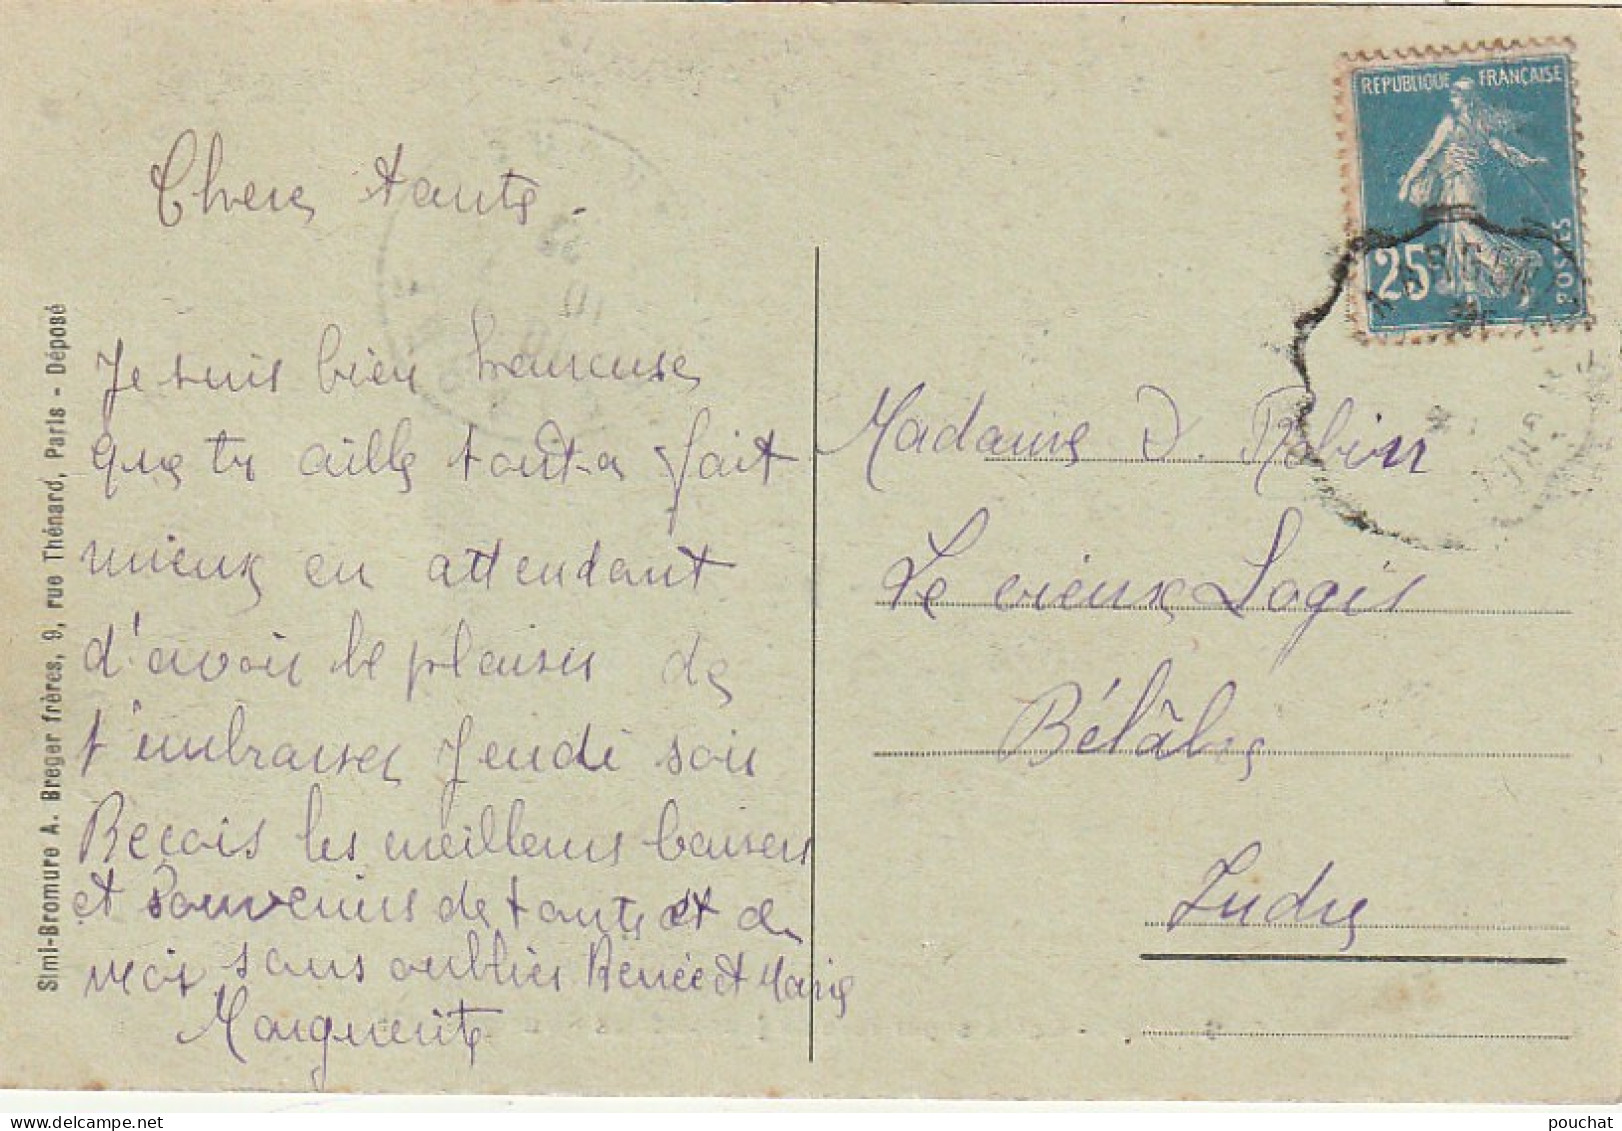 Simi-Bromure A. Breger frères, 9, rue Thénard, Paris - Déposé
Chere tante.
Je suis bien heureuse
que tu aille tout a fait
mieux en attendant
d'avoir le plaisir de
t'embrasser Jeudi soir
Recois les meilleurs baisers
et souvenirs de tante et de
moi sans oublier Renée et Marie
Marguerite
REPUBLIQUE FRANÇAISE
25
POSTES
Madame D. Robin
Le vieux Logis
Bélâbre
Indre
pouchat